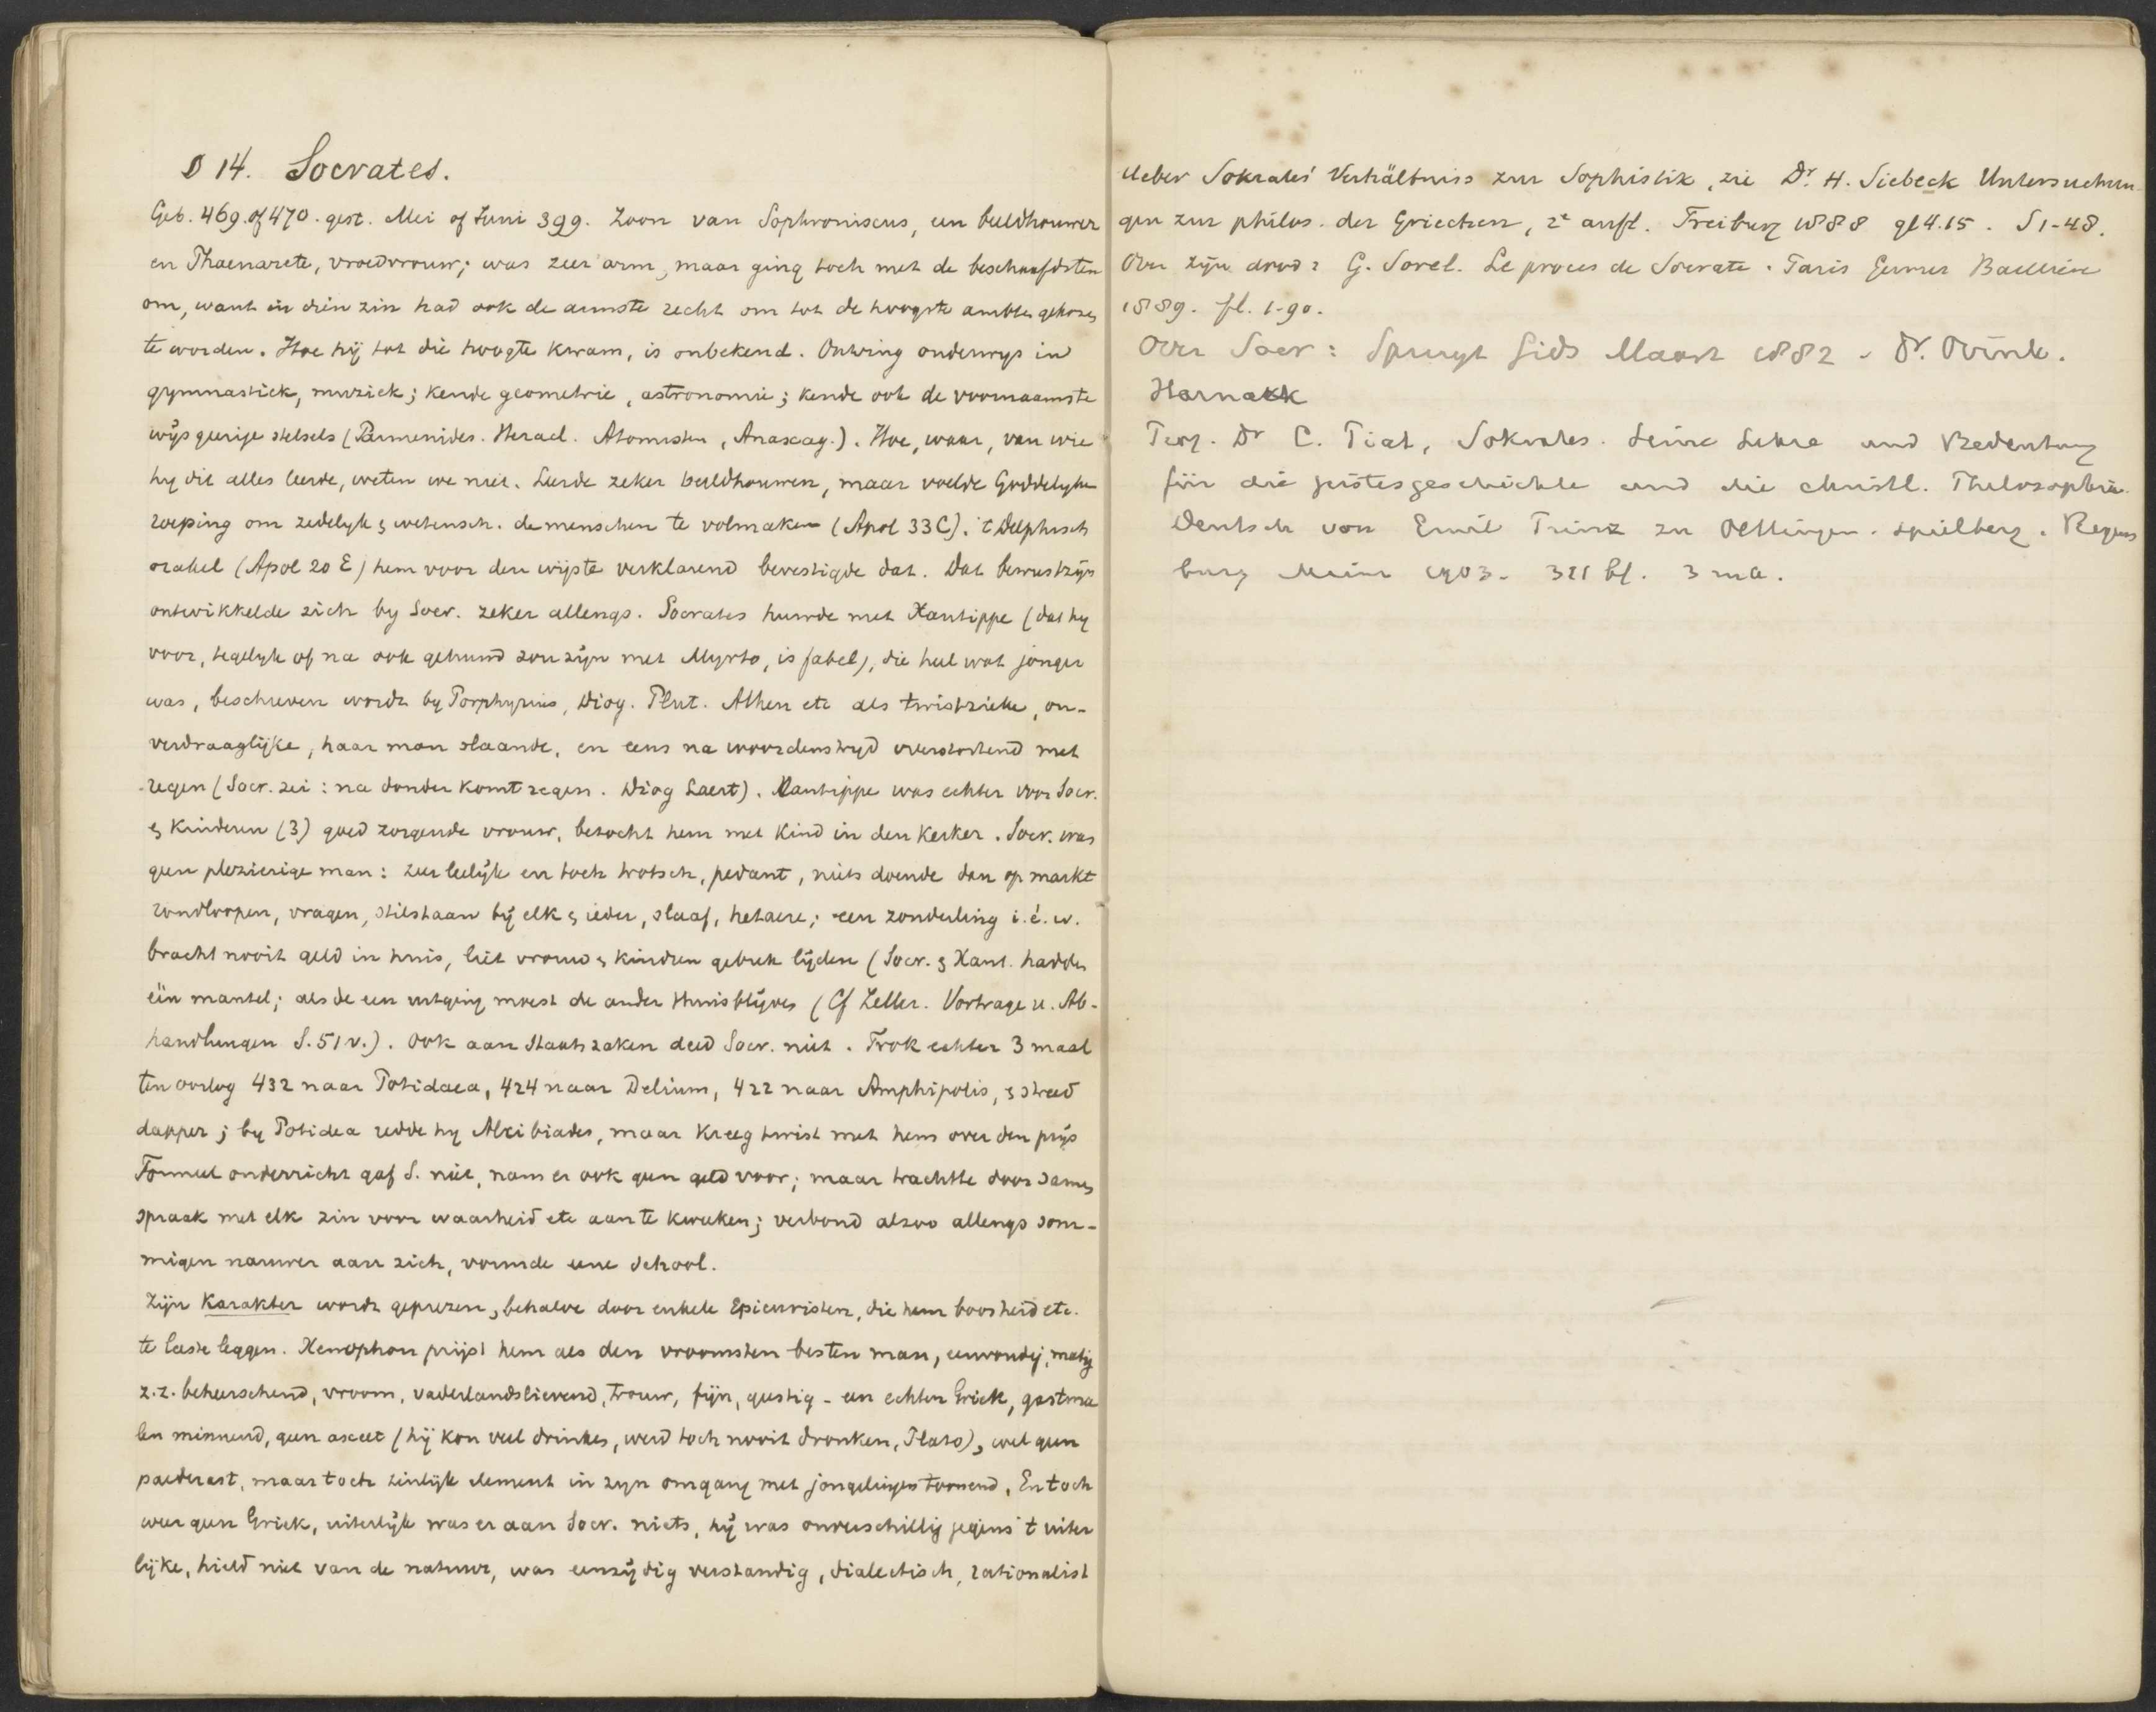 § 14. Socrates.
Geb. 469 of 470. gest. Mei of Juni 399. Zoon van Sophroniscus, een beeldhouwer
en Phaenarete, vroedvrouw; was zeer arm, maar ging toch met de beschaafdsten
om, want in dien zin had ook de armste recht om tot de hoogste ambten gekozen
te worden. Hoe hij tot die hoogte kwam, is onbekend. Ontving onderwys in
gymnastiek, muziek; kende geometrie, astronomie; kende ook de voornaamste
wijsgeerige stelsels (Parmenides. Heracl. Atomisten, Anaxag.). Hoe, waar, van wie
hy dit alles leerde, weten we niet. Leerde zeker beeldhouwen, maar voelde Goddelyke
roeping om zedelyk & wetensch. de menschen te volmaken (Apol 33C). 't Delphisch
orakel (Apol 20 E) hem voor den wijste verklarend bevestigde dat. Dat bewustzijn
ontwikkelde zich by Socr. zeker allengs. Socrates huwde met Xantippe (dat hy
voor, tegelyk of na ook gehuwd zou zijn met Myrto, is fabel), die heel wat jonger
was, beschreven wordt by Porphyrius, Diog. Plut. Athen etc als twistzieke, on-
verdraaglijke, haar man slaande, en eens na woordenstryd overstortend met
regen (Socr. zei: na donder komt regen. Diog Laert). Xantippe was echter voor Socr.
& kinderen (3) goed zorgende vrouw, bezocht hem met kind in den kerker. Socr. was
geen plezierige man: zeer leelijk en toch trotsch, pedant, niets doende dan op markt
rondloopen, vragen, stilstaan bij elk & ieder, slaaf, hetaere; een zonderling i.é.w.
bracht nooit geld in huis, liet vrouw & kinderen gebrek lijden (Socr. & Xant. hadden
één mantel; als de een uitging moest de ander thuisblijven (Cf Zeller. Vortrage u. Ab-
handlungen S. 51 v.). Ook aan Staatszaken deed Socr. niet. Trok echter 3 maal
ten oorlog 432 naar Potidaea, 424 naar Delium, 422 naar Amphipolis, & streed
dapper; by Potidea redde hy Alcibiades, maar kreeg twist met hem over den prijs
Formeel onderricht gaf S. niet, nam er ook geen geld voor; maar trachtte door samen
spraak met elk zin voor waarheid etc aan te kweeken; verbond alzoo allengs som-
migen nauwer aan zich, vormde eene School.
Zijn karakter wordt geprezen, behalve door enkele Epicuristen, die hem boosheid etc.
te laste leggen. Xenophon prijst hem als den vroomsten besten man, eenvoudig, matig
z.z. beheerschend, vroom, vaderlandslievend, trouw, fijn, geestig - een echten Griek, gastma
len minnend, geen asceet (hij kon veel drinken, werd toch nooit dronken, Plato), wel geen
paederast, maar toch zinlijk element in zyn omgang met jongelingen toonend. En toch
weer geen Griek, uiterlijk was er aan Socr. niets, hij was onverschillig jegens 't uiter
lijke, hield niet van de natuur, was eenzijdig verstandig, dialectisch, rationalist
Ueber Sokrates' Verhältniss zur Sophistik, zie Dr. H. Siebeck Untersuchun-
gen zur philos. der Griechen, 2e aufl. Freiburg 1888 gl 4.15. S 1-48.
Over zijn dood: G. Sorel. Le proces de Socrate. Paris Germer Baillière
1889. fl. 1.90.
Over Socr: Spruyt Gids Maart 1882 - Dr. Ovink.
Harnack
Dr C. Piat, Sokrates. Seine Lehre und Bedeutung
für die geistesgeschichte und die christl. Philosophie.
Deutsch von Emil Prinz zu Oettingen-Spielberg. Regens
burg 1903. 311 bl. 3 ma.